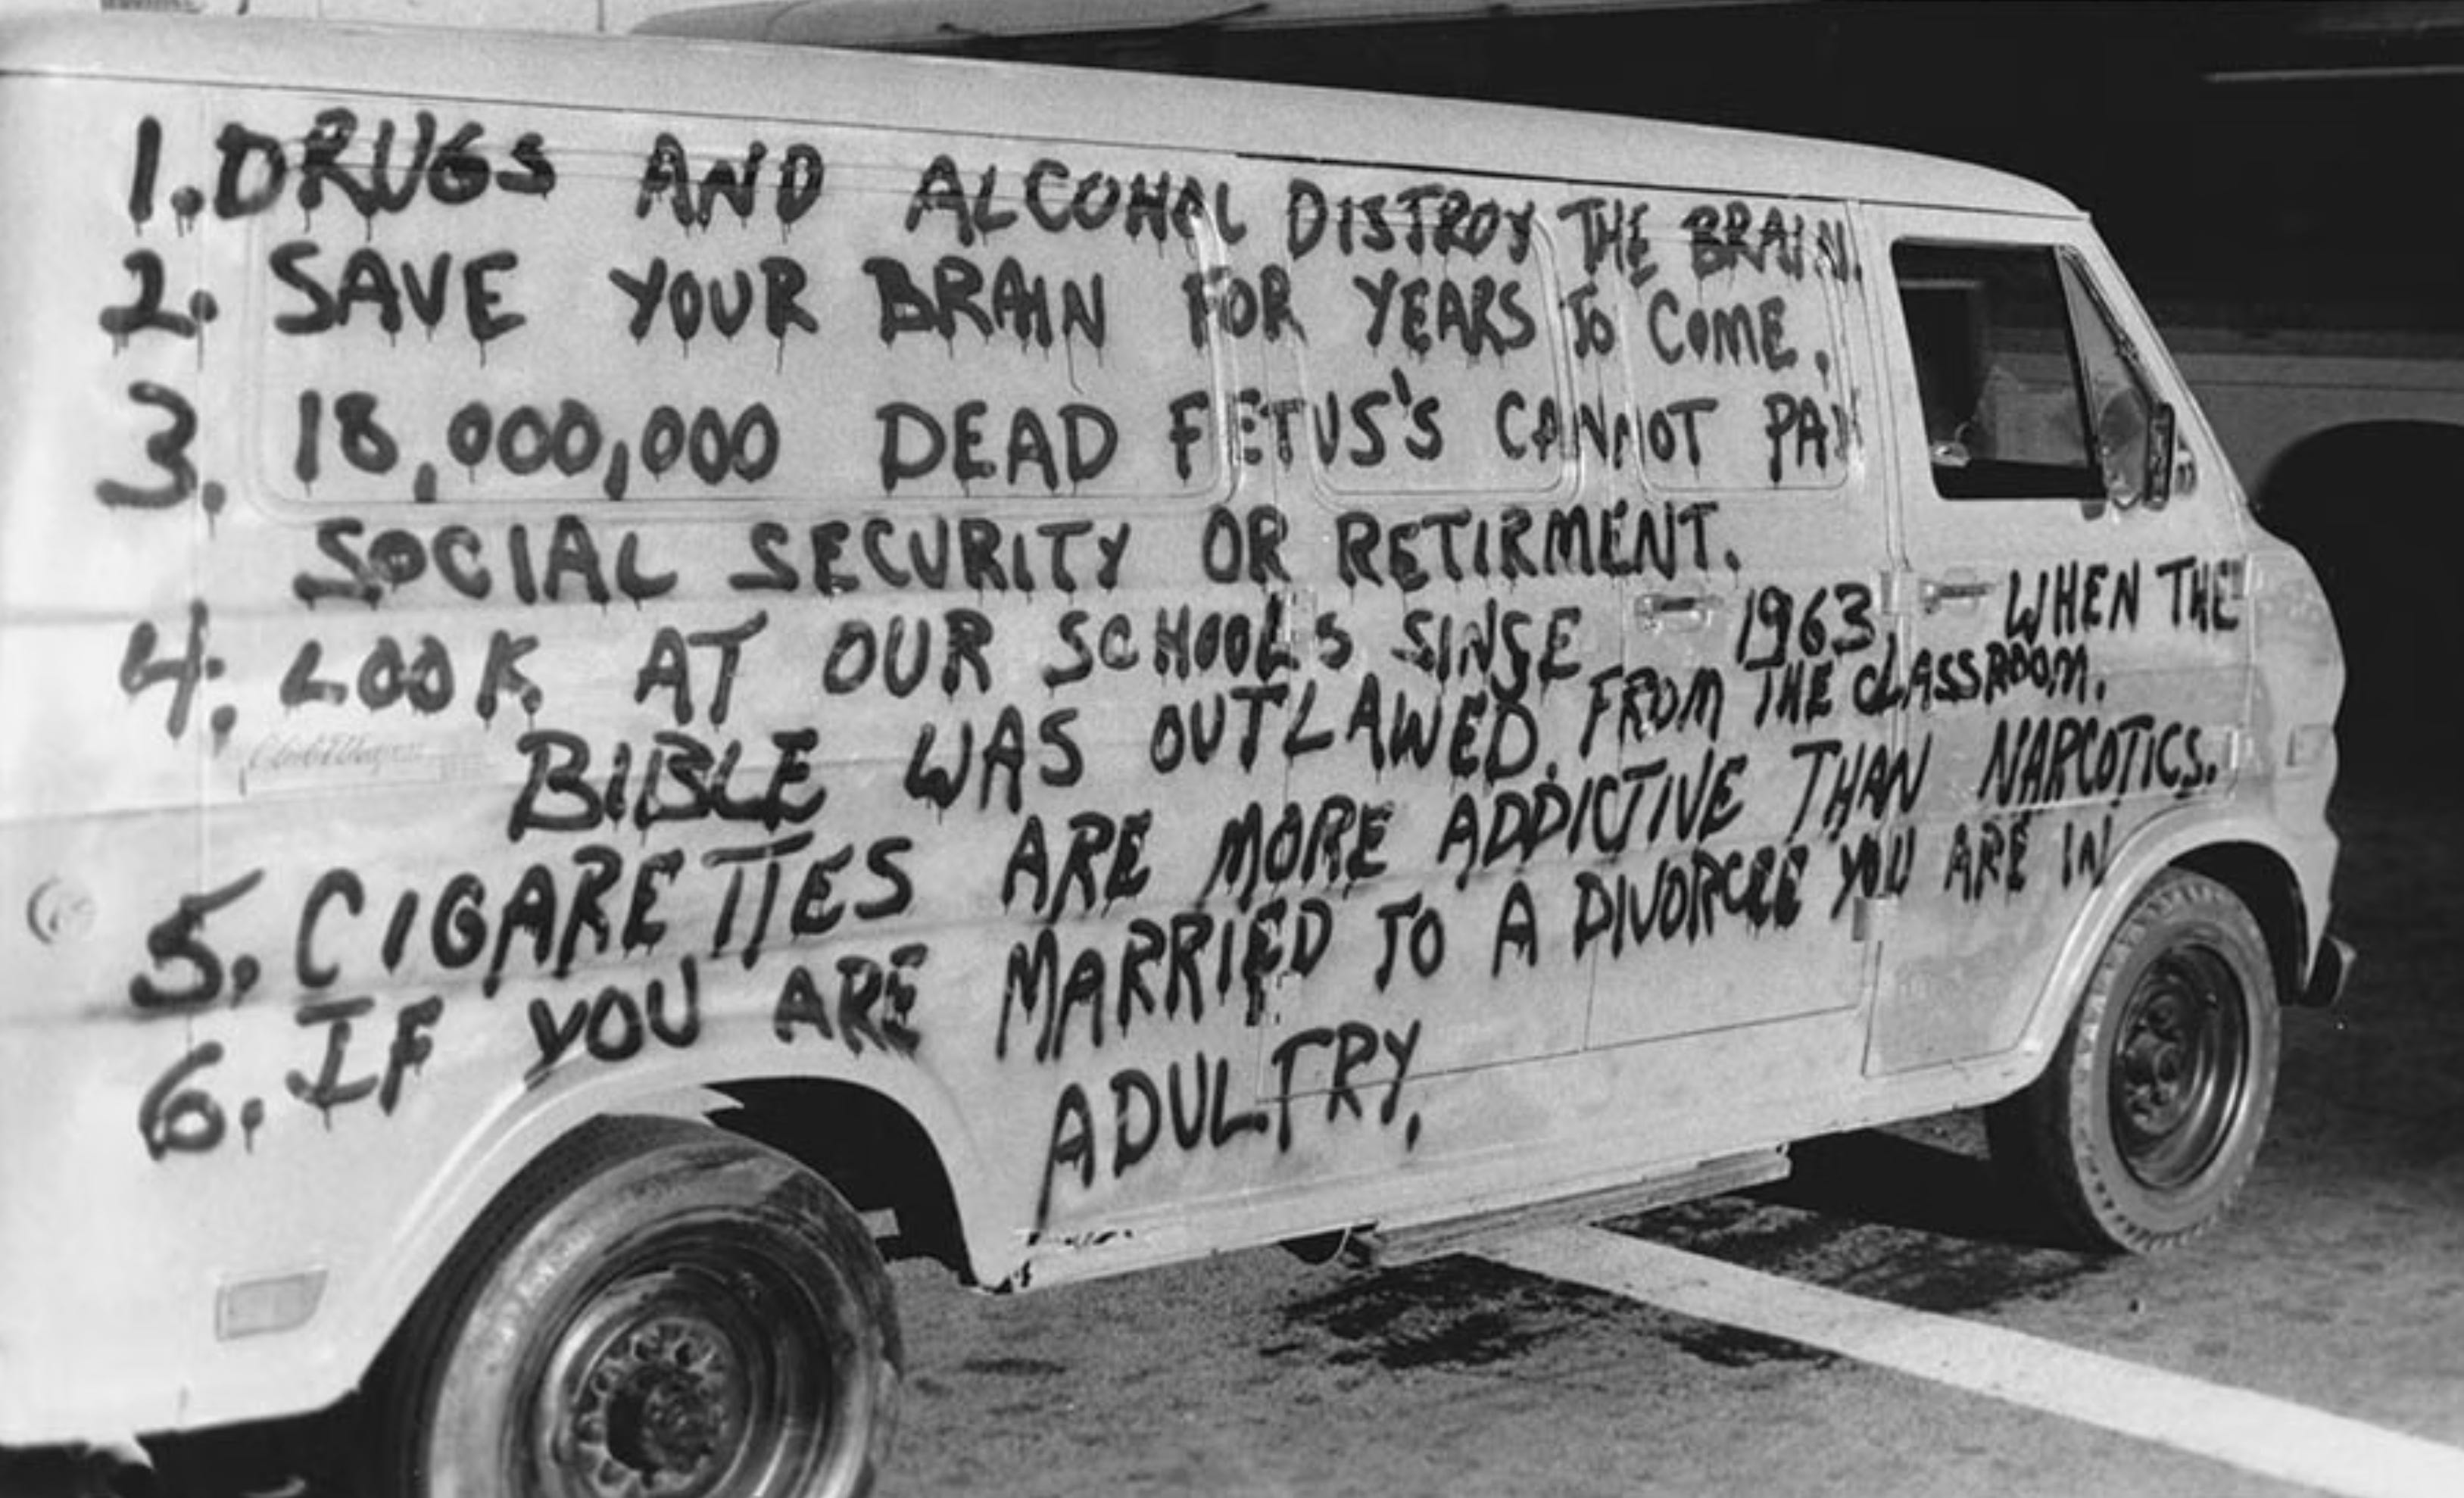 1. DRUGS AND ALCOHOL DISTROY THE BRAIN.
2. SAVE YOUR BRAIN FOR YEARS TO COME.
3. 18,000,000 DEAD FETUS'S CANNOT PAY
SOCIAL SECURITY OR RETIRMENT.
4. LOOK AT OUR SCHOOLS SINSE 1963 WHEN THE
BIBLE WAS OUTLAWED. FROM THE CLASSROOM.
5. CIGARETTES ARE MORE ADDICTIVE THAN NARCOTICS.
6. IF YOU ARE MARRIED TO A DIVORCEE YOU ARE IN
ADULTRY.